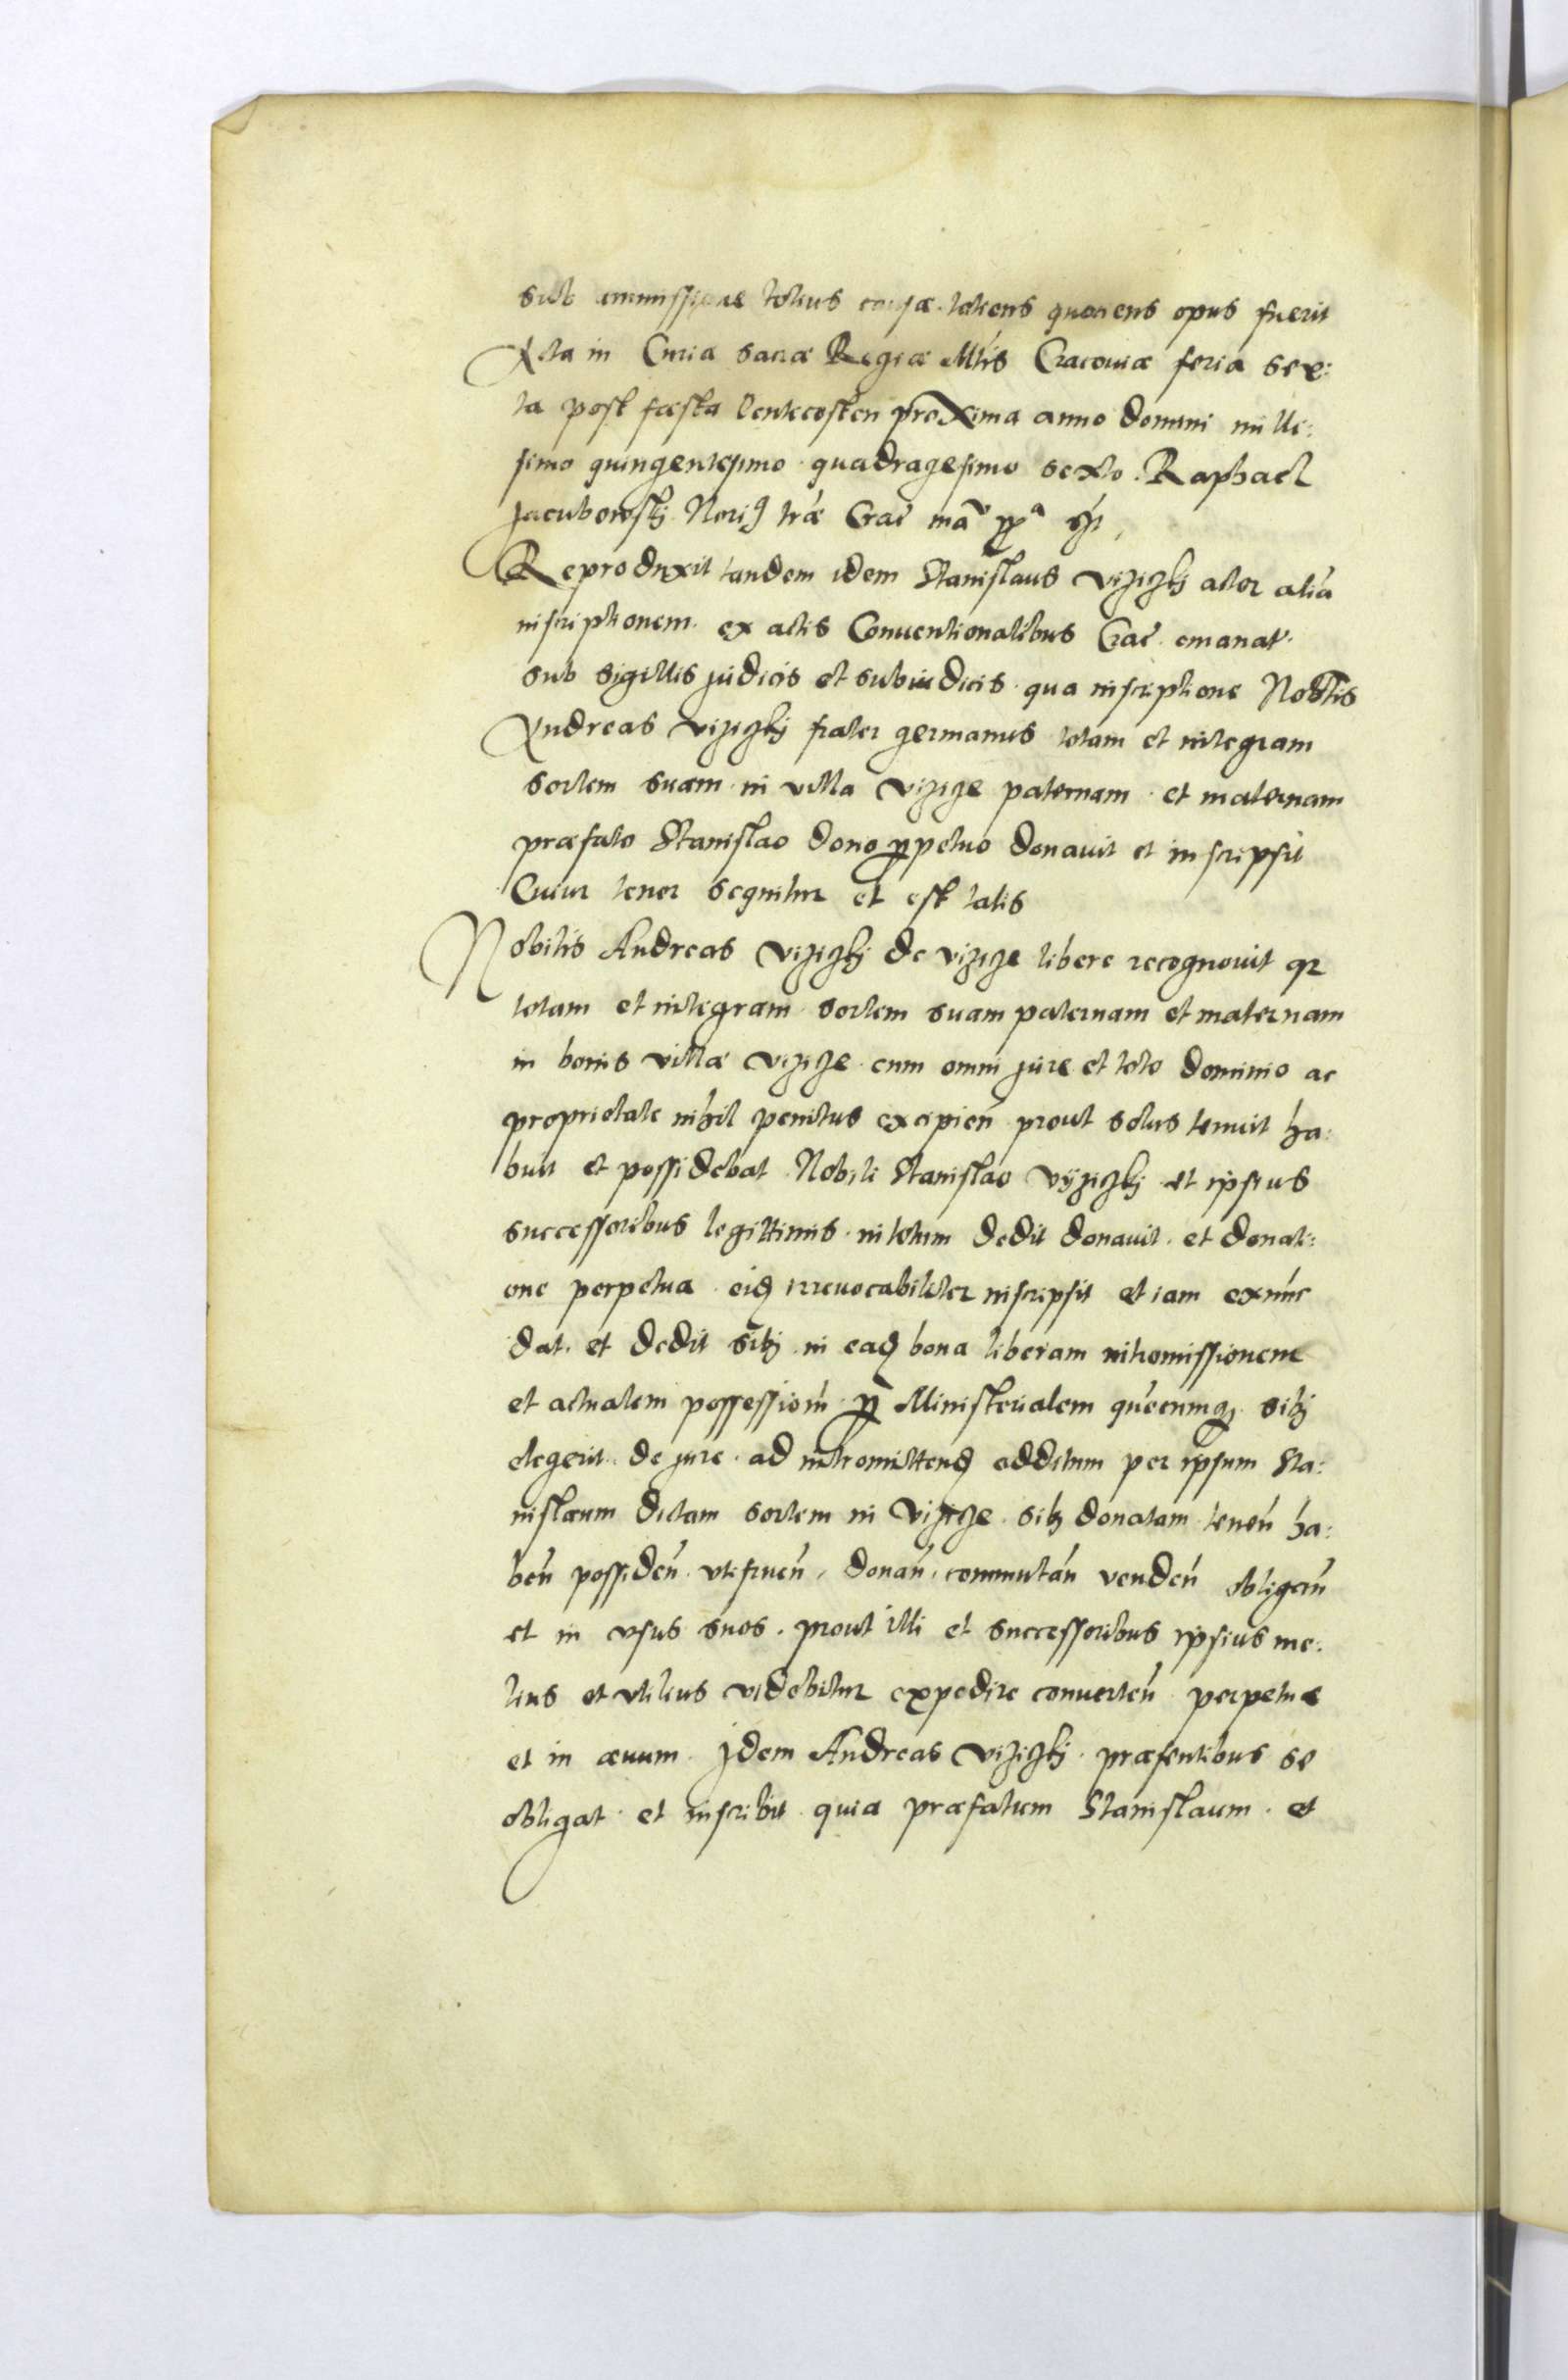 sub ammissione totius causæ totiens quotiens opus fuerit
Acta in Curia sacræ Regiæ Mtis Cracouiæ feria sex:
ta post fæsta Pentecosten proxima anno domini mille:
simo quingentesimo quadragesimo sexto. Raphael
Jacubowskj Noriꝰ træ Crac̄ mā ꝓpa
Reproduxit tandem idem Stanislaus Viziczkj actor aliā
inscriptionem ex actis Conuentionalibus Crac̄ emanat.
sub sigillis judicis et subiudicis qua inscriptione Nobłis
Andreas Viziczkj frater germanus totam et integram
sortem suam in villa Vizicze paternam et maternam
præfato Stanislao dono ꝑpetuo donauit et inscripsit
Cuius tenor sequitur et est talis
Nobilis Andreas Viziczkj de Vizicze libere recognouit qꝛ
totam et integram sortem suam paternam et maternam
in bonis villæ Vizicze cum omni jure et toto dominio ac
proprietate nihil penitus excipień prout solus tenuit ha:
buit et possidebat Nobili Stanislao Vyziczkj et ipsius
successoribus legittimis in totum dedit donauit et donati:
one perpetua eiꝫ irreuocabiliter inscripsit et iam exnūc
dat et dedit sibj in eaꝫ bona liberam intromissionem
et actualem possessionē ꝑ Ministerialem quēcumqꝫ sibj
elegerit de jure ad intromittendꝫ additum per ipsum Sta:
nislaum dictam sortem in Vizicze sibj donatam teneń ha:
beń possideń vtifrueń, donań, commutań vendeń obligań
et in vsus suos prout illi et successoribus ipsius me:
lius et vtilius videbitur expedire conuerteń perpetue
et in æuum. Jdem Andreas Viziczkj præsentibus se
obligat et inscribit quia præfatum Stanislaum et